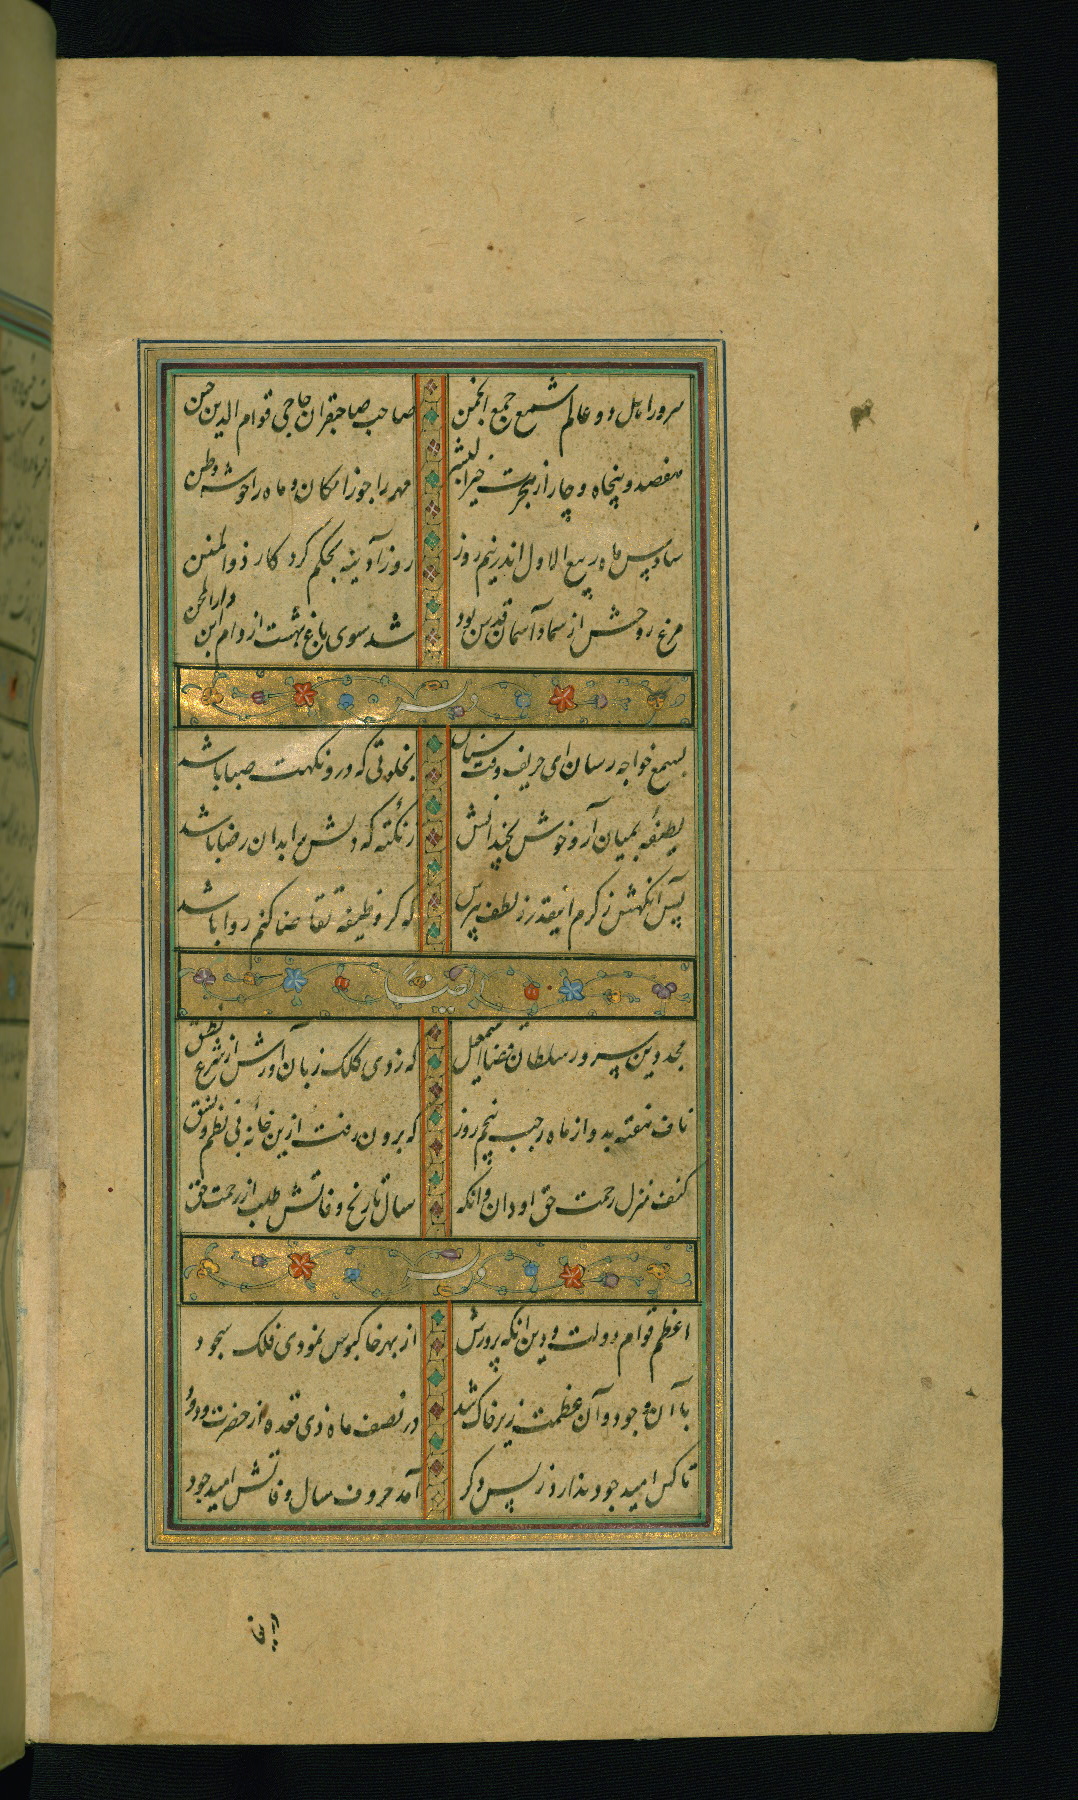 سرور اهل دو عالم شمع جمع انجمن صاحب صاحبقران حاجی قوام الدین حسن
هفصد و پنجاه و چار از هجرت خیر البشر مهر را جوزا مکان و ماه را خوشه وطن
سادس ماه ربیع الاول اندر نیم روز روز آدینه بحکم کردکار ذو المنن
مرغ روحش از سماو آسمان قدس بود شد سوی باغ بهشت از دام این دار المحن
وله
بسمع خواجه رسان ای حریف وقت شناس بخلوتی که درو نکهت صبا باشد
لطیفه بمیان آر و خوش بخندانش ز نکته که دلش را بدان رضا باشد
پس آنکهش ز کرم اینقدر ز لطف بپرس که کر وظیفه تقاضا کنم روا باشد
ایضا
مجد دین سرور سلطان قضا اسمعیل که زدی کلک زبان آورش از شرع نطق
ناف هفته بد و از ماه رجب پنجم روز که برون رفت ازین خانه بی نظم و نسق
کنف منزل رحمت حق او دان وانکه سال تاریخ وفاتش طلب از رحمت حق
وله
اعظم قوام دولت و دین انکه بر درش از بهر خاکبوس نمودی فلک سجود
با آن وجود و آن عظمت زیر خاک شد در نصف ماه ذی قعده از حضرت ودود
تا کس امید جود ندارد ز پس دکر آمد حروف سال وفاتش امید جود